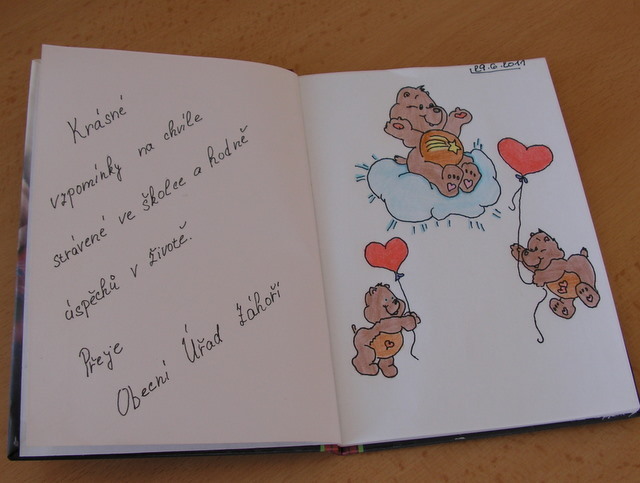 Krásné
vzpomínky na chvíle
strávené ve školce a hodně
úspěchů v životě.
Přeje
Obecní Úřad Záhoří
29.6.2011